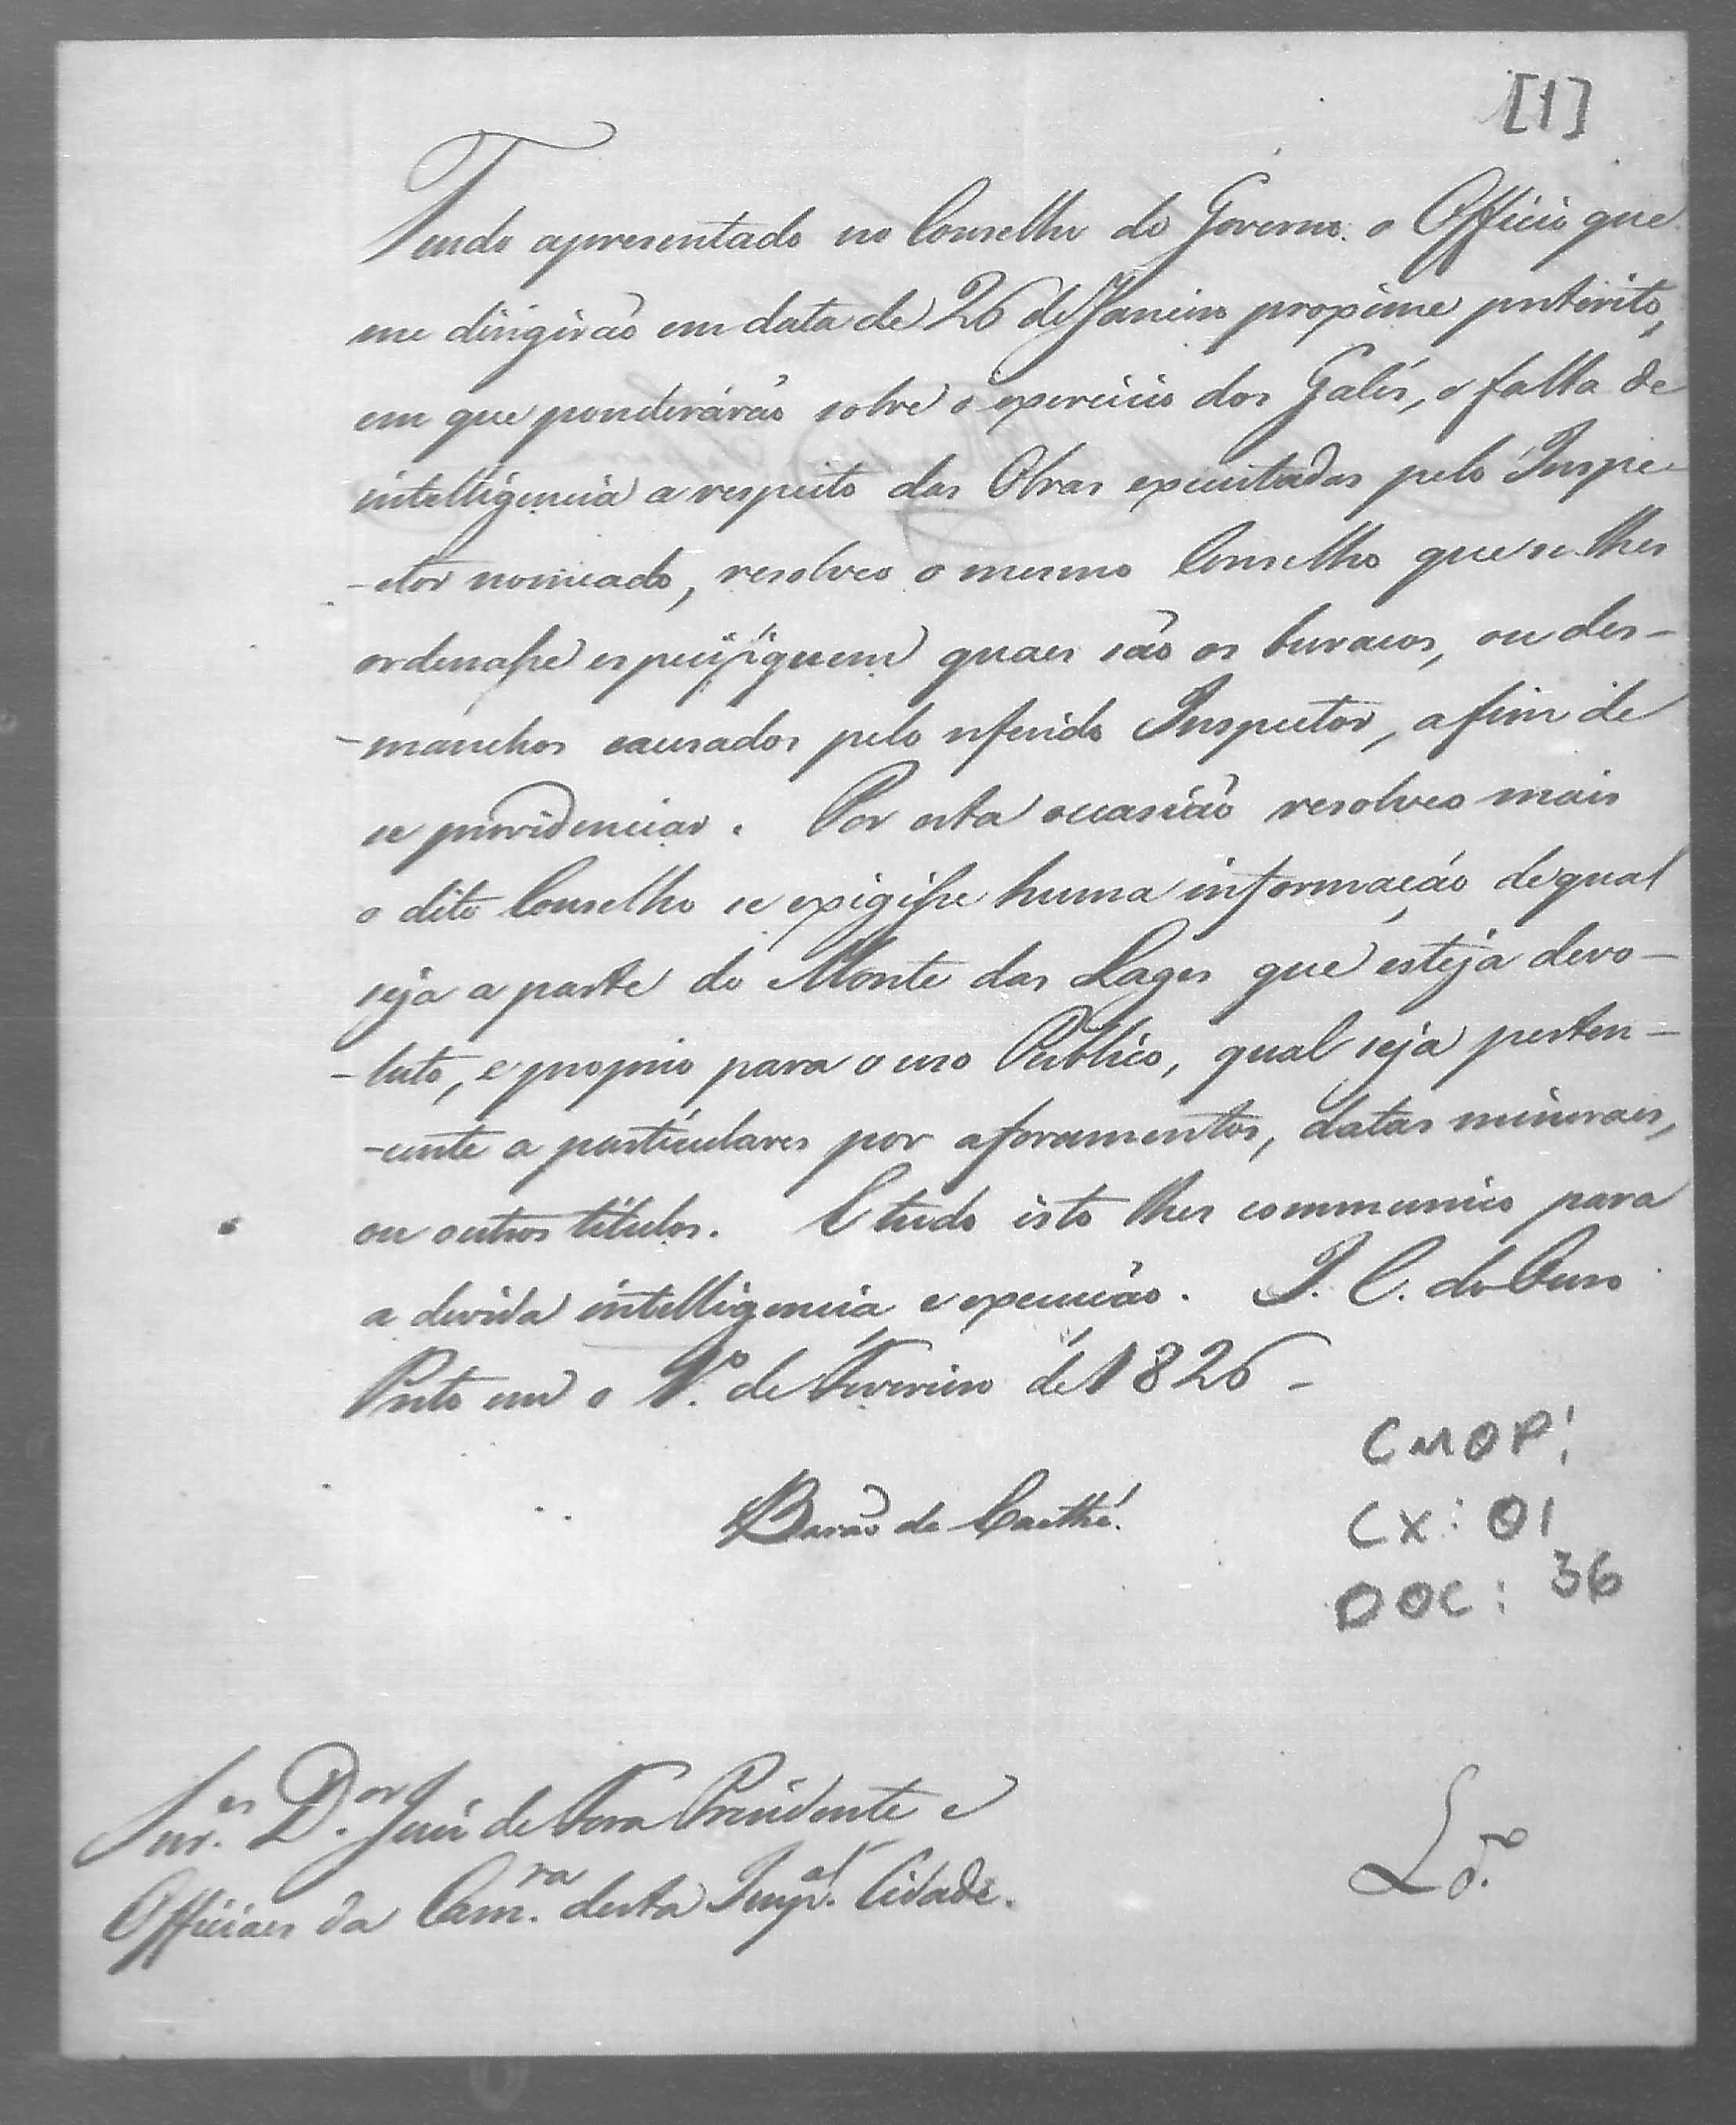 [1]
Tendo apresentado no Conselho do Governo o Officio que
me dirigirão em data de 26 de Janeiro proximo preterito,
em que ponderárão sobre o exercicio dos Galés, e falta de
intelligencia a respeito das Obras executadas pelo Inspe-
-ctor nomeado, resolveo o mesmo Conselho que se lhes
ordenasse especifiquem quaes são os buracos, ou des-
-manchos causados pelo referido Inspector, afim de
se providenciar. Por esta occasião resolveo mais
o dito Conselho se exigisse huma informação de qual
seja a parte do Monte das Lages que esteja devo-
-luto, e proprio para o uso Publico, qual seja perten-
-cente a particulares por aforamentos, datas mineraes,
ou outros titulos. E tudo isto lhes communico para
a devida intelligencia e execução. I. C. do Ouro
Preto em o 1.º de Fevereiro de 1826 -
CMOP:
Barão de Caethé.
CX: 01
DOC: 36
Snr.es D.or Juiz de Fora Presidente e
Officiaes da Cam.ra desta Imp.al Cidade.